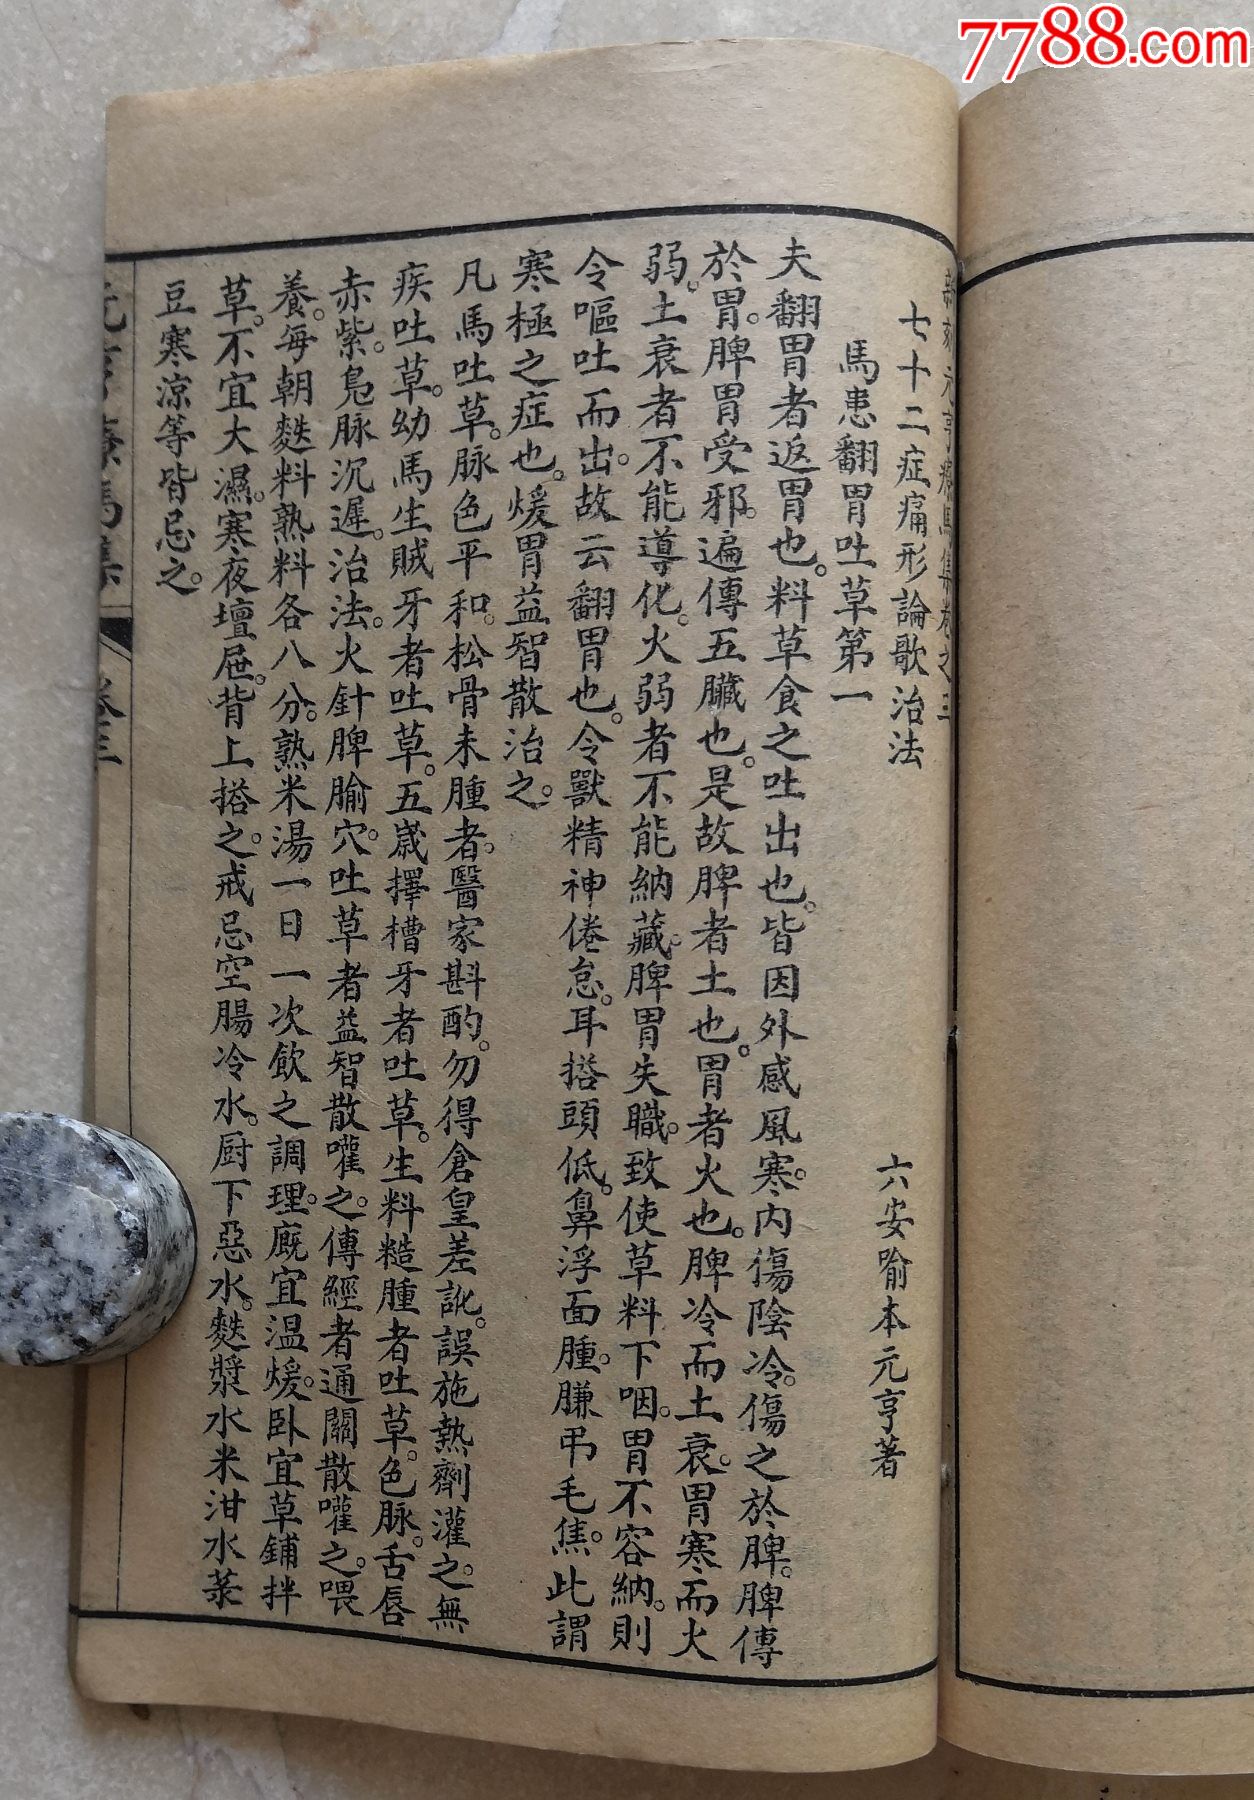 7788.com
新刻元亨療馬集卷之三
七十二症痛形論歌治法
六安喻本元亨著
馬患翻胃吐草第一
夫翻胃者返胃也。料草食之吐出也。皆因外感風寒。內傷陰冷。傷之於脾。脾傳
於胃。脾胃受邪。遍傳五臟也。是故脾者土也。胃者火也。脾冷而土衰。胃寒而火
弱。土衰者不能導化。火弱者不能納藏。脾胃失職。致使草料下咽。胃不容納。則
令嘔吐而出。故云翻胃也。令獸精神倦怠。耳搭頭低。鼻浮面腫。膁弔毛焦。此謂
寒極之症也。煖胃益智散治之。
凡馬吐草。脉色平和。松骨未腫者。醫家斟酌。勿得倉皇差訛。誤施熱劑灌之。無
疾吐草。幼馬生賊牙者吐草。五歲擇槽牙者吐草。生料糙腫者吐草。色脉。舌唇
赤紫。鳧脉沉遲。治法。火針脾腧穴。吐草者益智散嚾之。傳經者通關散嚾之。喂
養。每朝麩料熟料各八分。熟米湯一日一次飲之調理。厩宜温煖。卧宜草鋪拌
草。不宜大濕。寒夜壇屉。背上搭之。戒忌空腸冷水。厨下惡水。麩漿水米泔水菉
豆寒涼等皆忌之。
元亨療馬集 卷三